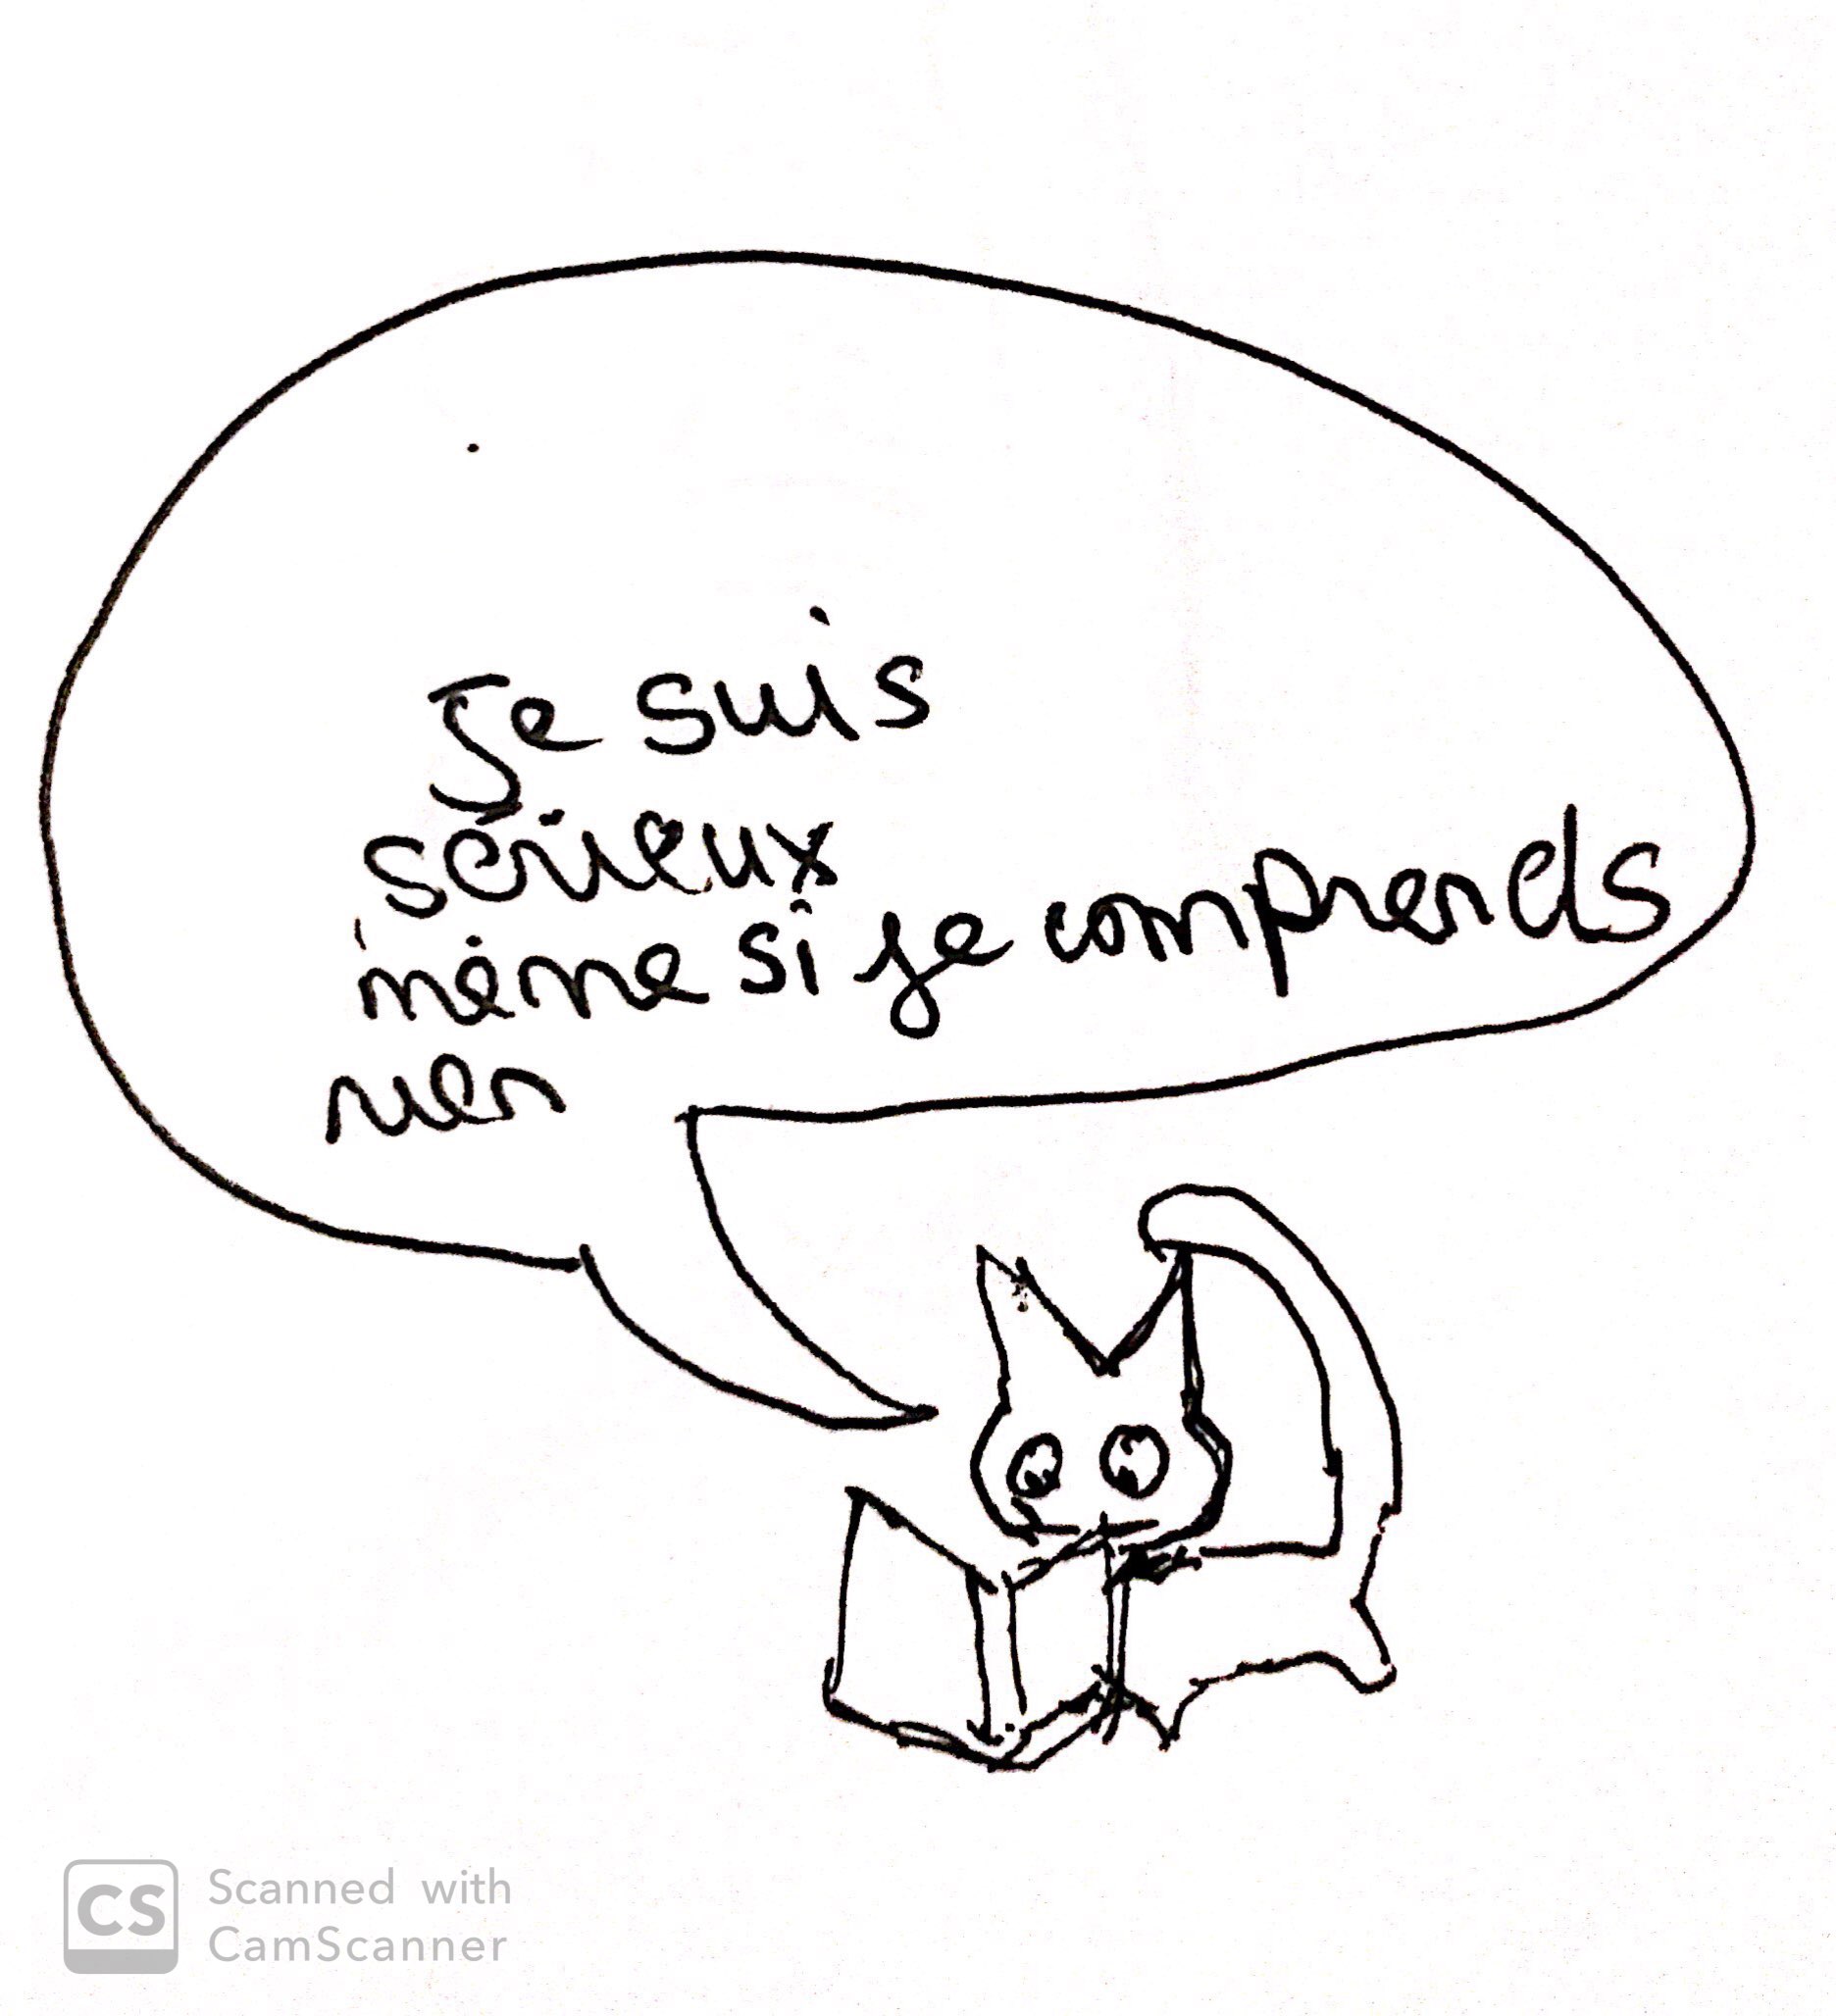 Je suis
sérieux
même si je comprends
rien
Scanned with
CamScanner
CS